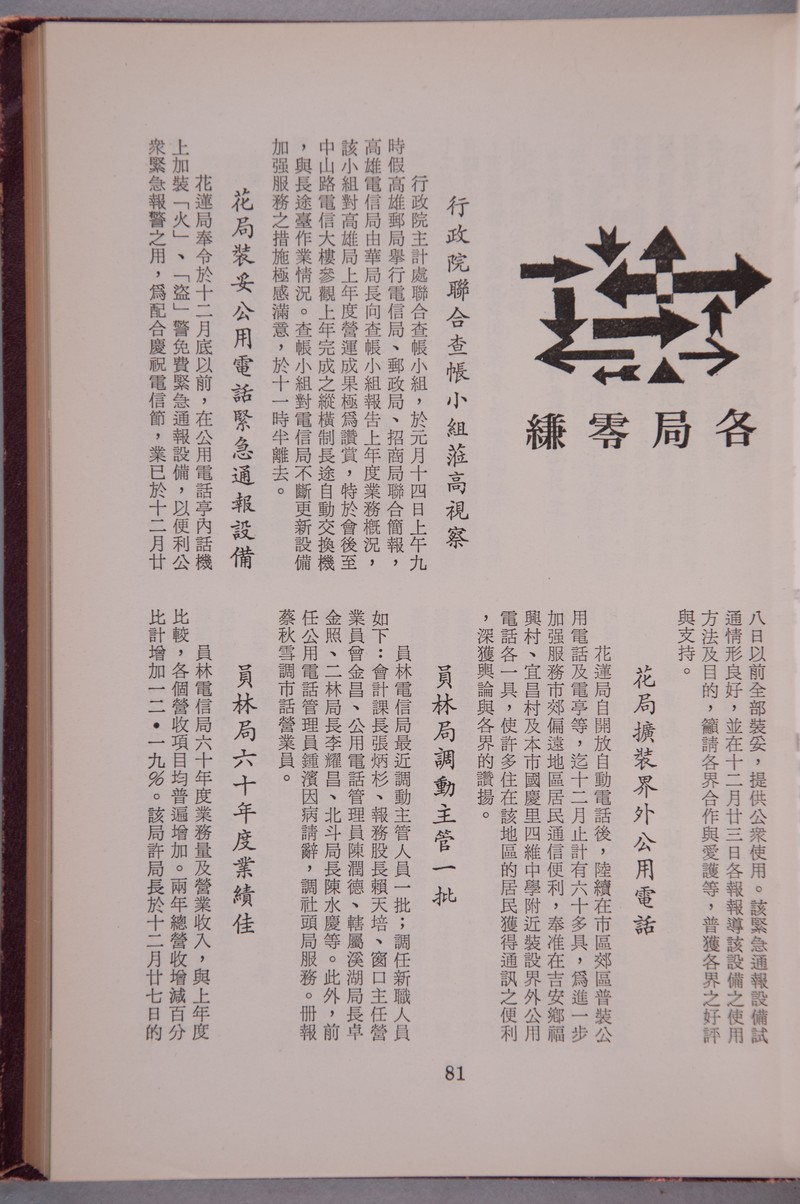 各局零縑
行政院聯合查帳小組蒞高視察
行政院主計處聯合查帳小組，於元月十四日上午九
時假高雄郵局舉行電信局、郵政局、招商局聯合簡報，
高雄電信局由華局長向查帳小組報告上年度業務概況，
該小組對高雄局上年度營運成果極爲讚賞，特於會後至
中山路電信大樓參觀上年完成之縱橫制長途自動交換機
，與長途臺作業情況。查帳小組對電信局不斷更新設備
加强服務之措施極感滿意，於十一時半離去。
花局裝妥公用電話緊急通報設備
花蓮局奉令於十二月底以前，在公用電話亭內話機
上加裝「火」、「盜」警免費緊急通報設備，以便利公
衆緊急報警之用，爲配合慶祝電信節，業已於十二月廿
八日以前全部裝妥，提供公衆使用。該緊急通報設備試
通情形良好，並在十二月廿三日各報報導該設備之使用
方法及目的，籲請各界合作與愛護等，普獲各界之好評
與支持。
花局擴裝界外公用電話
花蓮局自開放自動電話後，陸續在市區郊區普裝公
用電話及電亭等，迄十二月止計有六十多具，爲進一步
加强服務市郊偏遠地區居民通信便利，奉准在吉安鄉福
興村、宜昌村及本市國慶里四維中學附近裝設界外公用
電話各一具，使許多住在該地區的居民獲得通訊之便利
，深獲輿論與各界的讚揚。
員林局調動主管一批
員林電信局最近調動主管人員一批；調任新職人員
如下：會計課長張炳杉、報務股長賴天培、窗口主任營
業員曾金昌、公用電話管理員陳潤德、轄屬溪湖局長卓
金照、二林局長李耀昌、北斗局長陳水慶等。此外，前
任公用電話管理員鍾濱因病請辭，調社頭局服務。冊報
蔡秋雪調市話營業員。
員林局六十年度業績佳
員林電信局六十年度業務量及營業收入，與上年度
比較，各個營收項目均普遍增加。兩年總營收增減百分
比計增加一二•一九％。該局許局長於十二月廿七日的
81